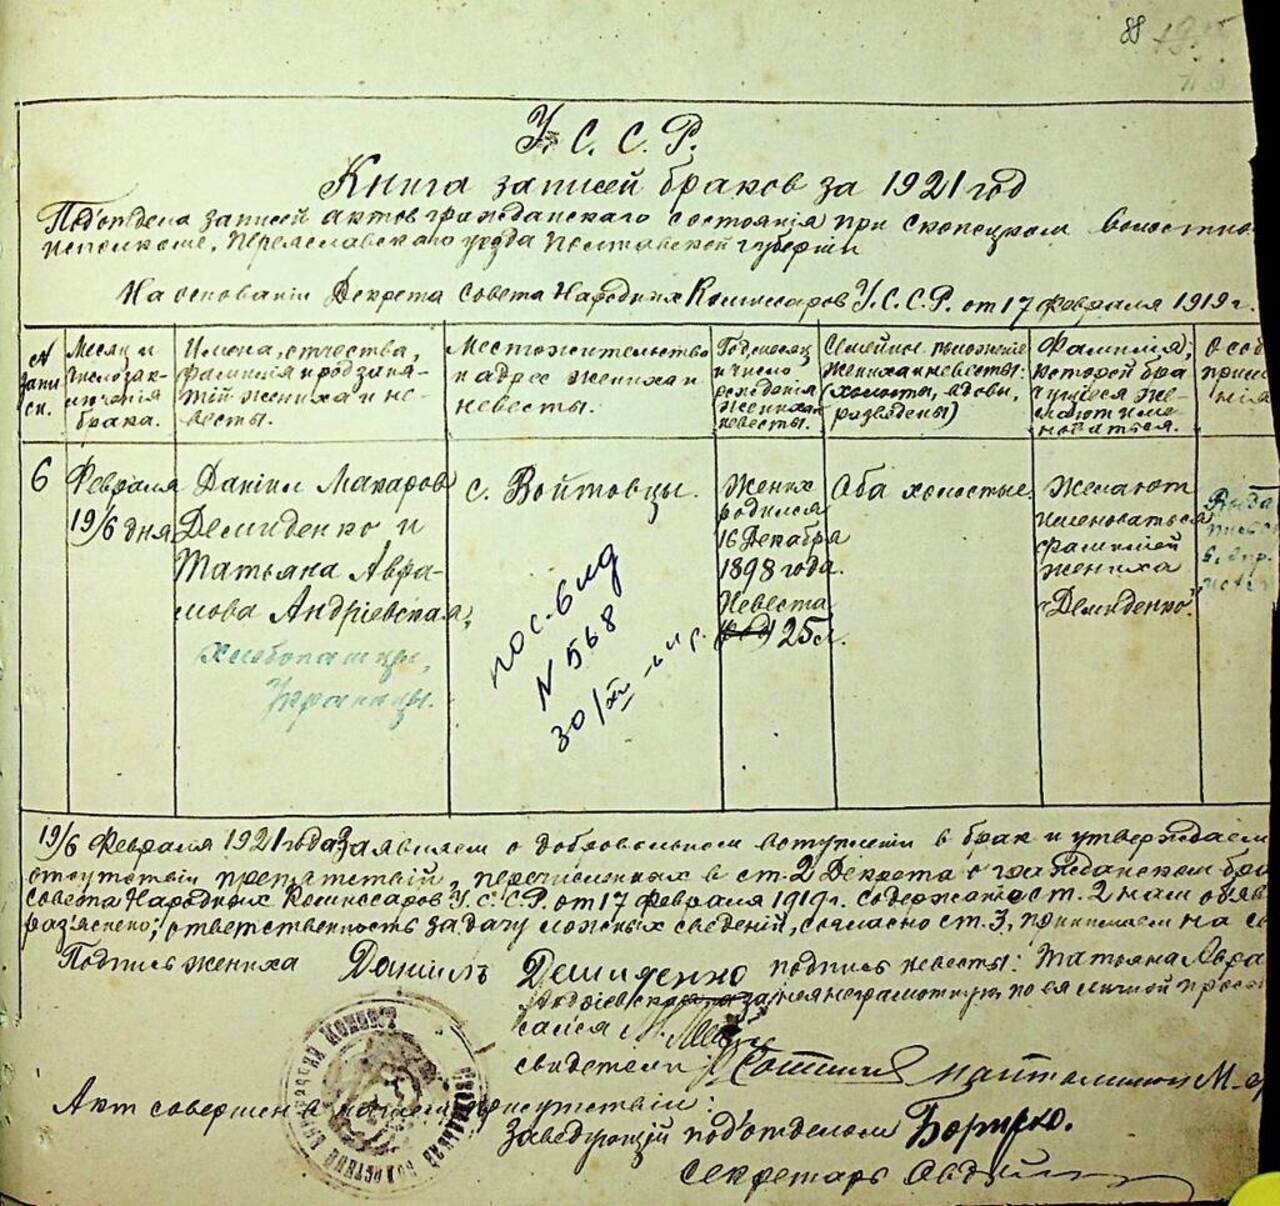 88
У. С. С. Р.
Книга записей браков за 1921 год
Подотдела записей актов гражданскаго состоянія при Скопецком волостно
исполкоме, Переяславскаго уезда Полтавской губерніи
На основаніи Декрета Совета Народних Комиссаров У.С.С.Р. от 17 февраля 1919 г.
№ запи си.
Месяц и число зак- лючения брака.
Имена, отчества, фамилія и род заня- тій жениха и не- весты.
Местожительство и адрес жениха и невесты.
Год, месяц и число рождения жениха и невесты.
Семейное положение жениха и невесты: (холосты, вдовы, разведены)
Фамилія, которой бра чущиеся же- лают име- новаться.
Особ приме нія
6
Февраля
19/6 дня
Даніил Макаров
Демиденко и
Татьяна Авра-
мова Андріевская,
Хлебопашцы,
Украинцы.
с. Войтовцы.
пос. 6
N 568
30/XI
Жених
родился
16 Декабря
1898 года.
Невеста
25 л.
Оба холостые.
Желают
именоваться
фамилией
жениха
"Демиденко".
Выда
19/6 Февраля 1921 года Заявляем о добровольном вступлении в брак и утверждаем
отсутствіи препятствій, перечисленных в ст. 2 Декрета о гражданском бра
Совета Народных Комиссаров У.С.С.Р. от 17 февраля 1919 г. содержание ст. 2 нам обяв
разяснено; ответственность за дачу ложных сведений, согласно ст. 3, принимаем на се
Подпись жениха Даниилъ Демиденко подпись невесты: Татьяна Авра
Андріевская а за нея неграмотную по ея личной прось
свидетели
Акт совершен в нашем присутствіи:
Заведующій подотделом Бориско.
Секретарь